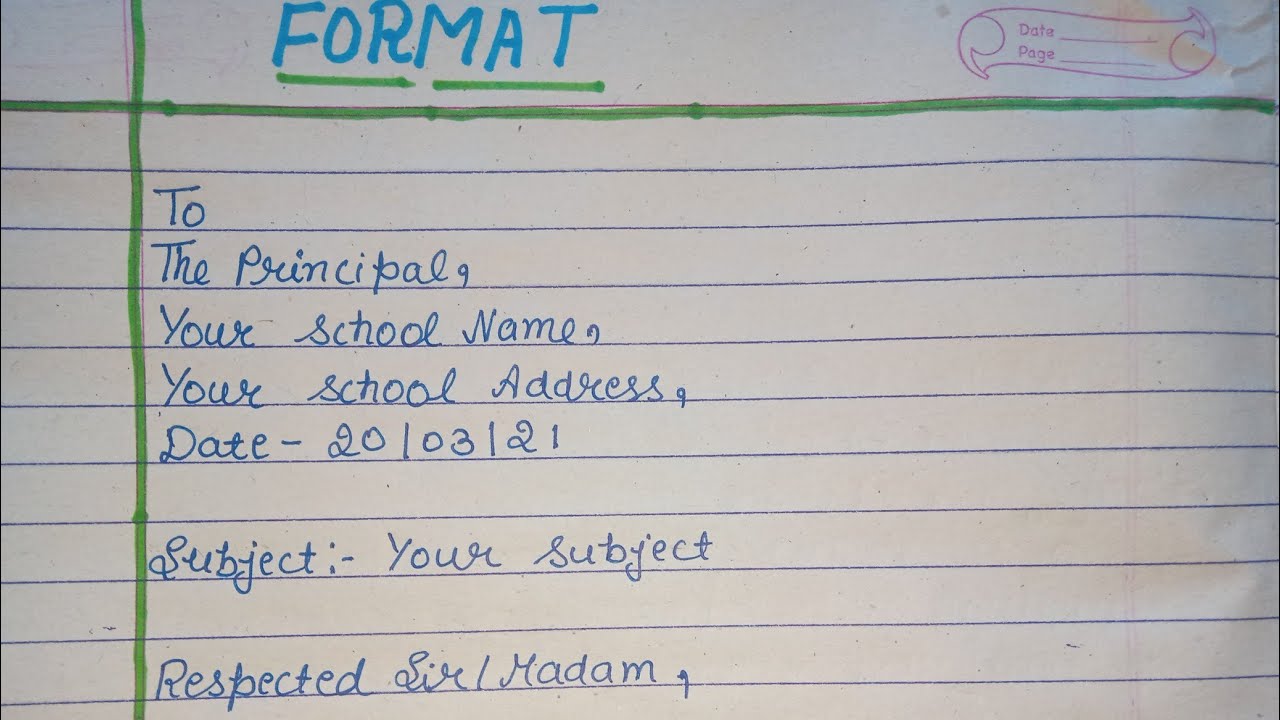 FORMAT
Date
Page
To
The Principal,
Your school Name,
Your school Address,
Date - 20/03/21
Subject:- Your subject
Respected Sir/Madam,